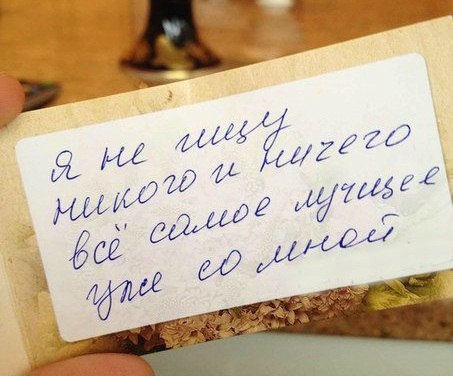 Я не ищу
никого и ничего
всё самое лучшее
уже со мной